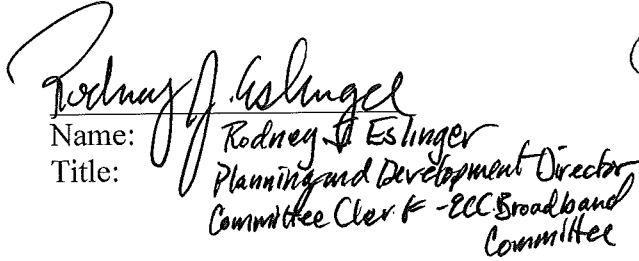 Rodney J. Eslinger
Name: Rodney J Eslinger
Title: Planning and Development Director
Committee Clerk - ECC Broadband
Committee